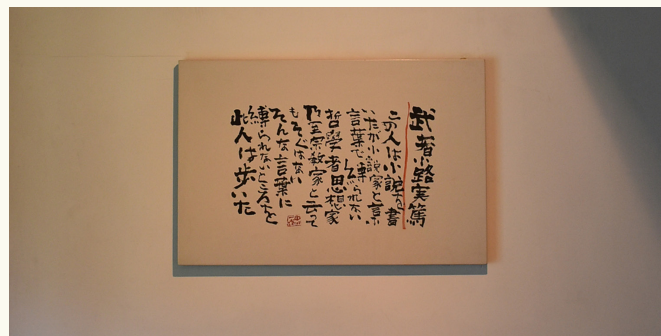 武者小路実篤
この人は小説を書
いたが小説家と言ふ
言葉で縛られない
哲學者思想家
乃至宗教家と云って
もそぐはない
そんな言葉に
縛られないところを
此人は歩いた